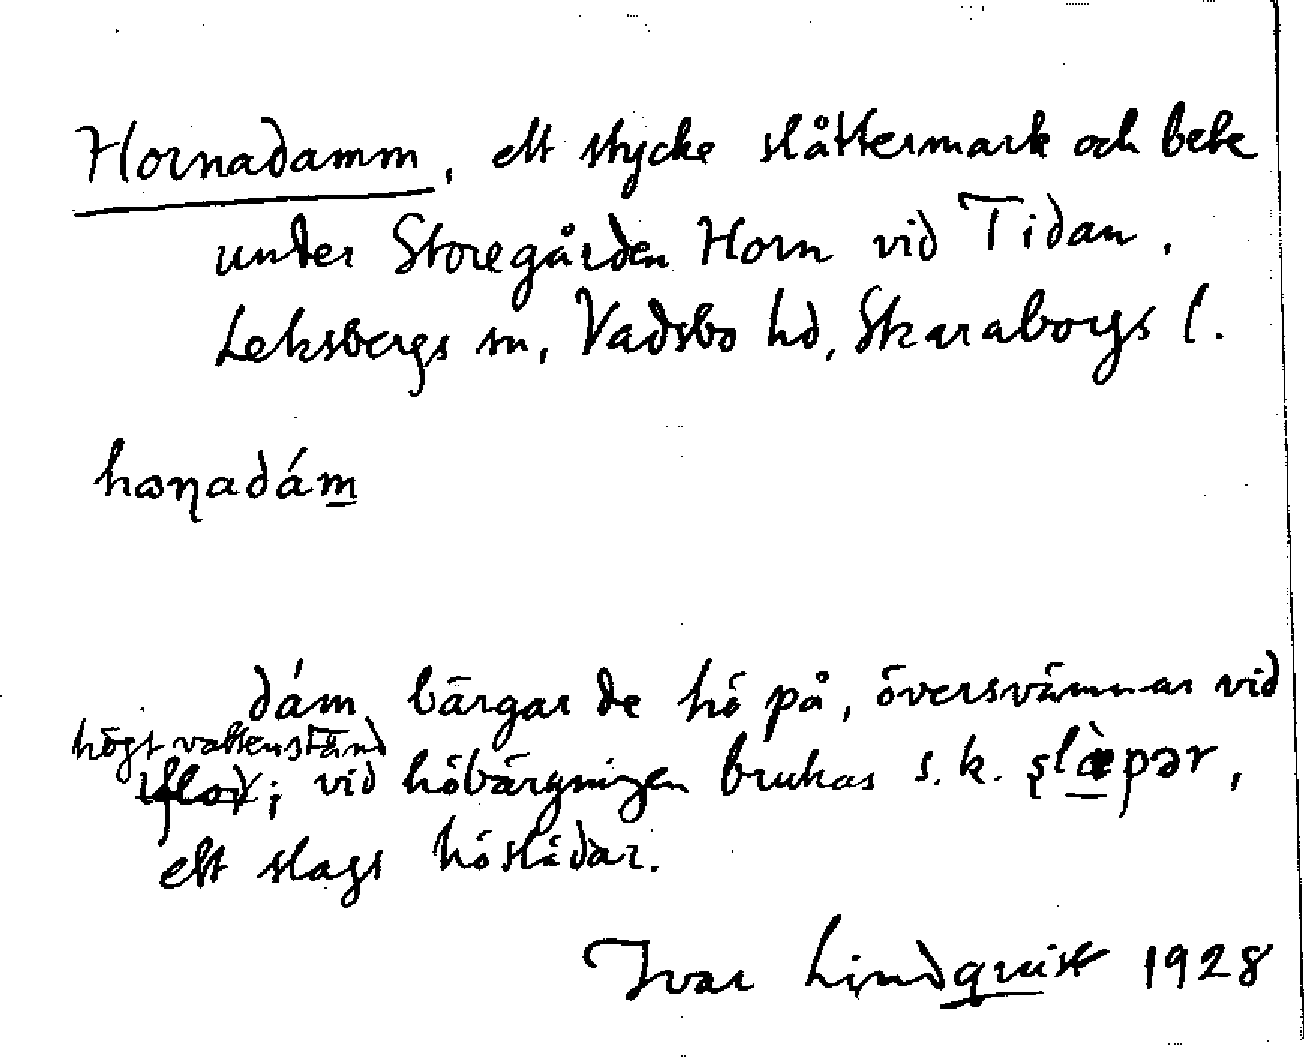 Hornadamm, ett stycke slåttermark och bete
under Storegården Horn vid Tidan,
Leksbergs sn, Vadsbo hd, Skaraborgs l.
hɷɳadám̲
dám bärgar de hö på, översvämmar vid
högt vattenstånd
flod; vid höbärgningen brukas s.k. şlæ̲̀pər,
ett slags höslädar.
Ivar Lindquist 1928